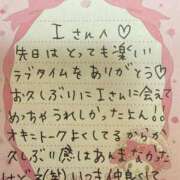 Iさんへ♡
先日はとっても楽しい
ラブタイムをありがとう♡
お久しぶりにIさんに会えて
めっちゃうれしかったよん!!
オキニトークよくしてるからか
久しぶり感はあんまなかった
けど
いつも仲良くて